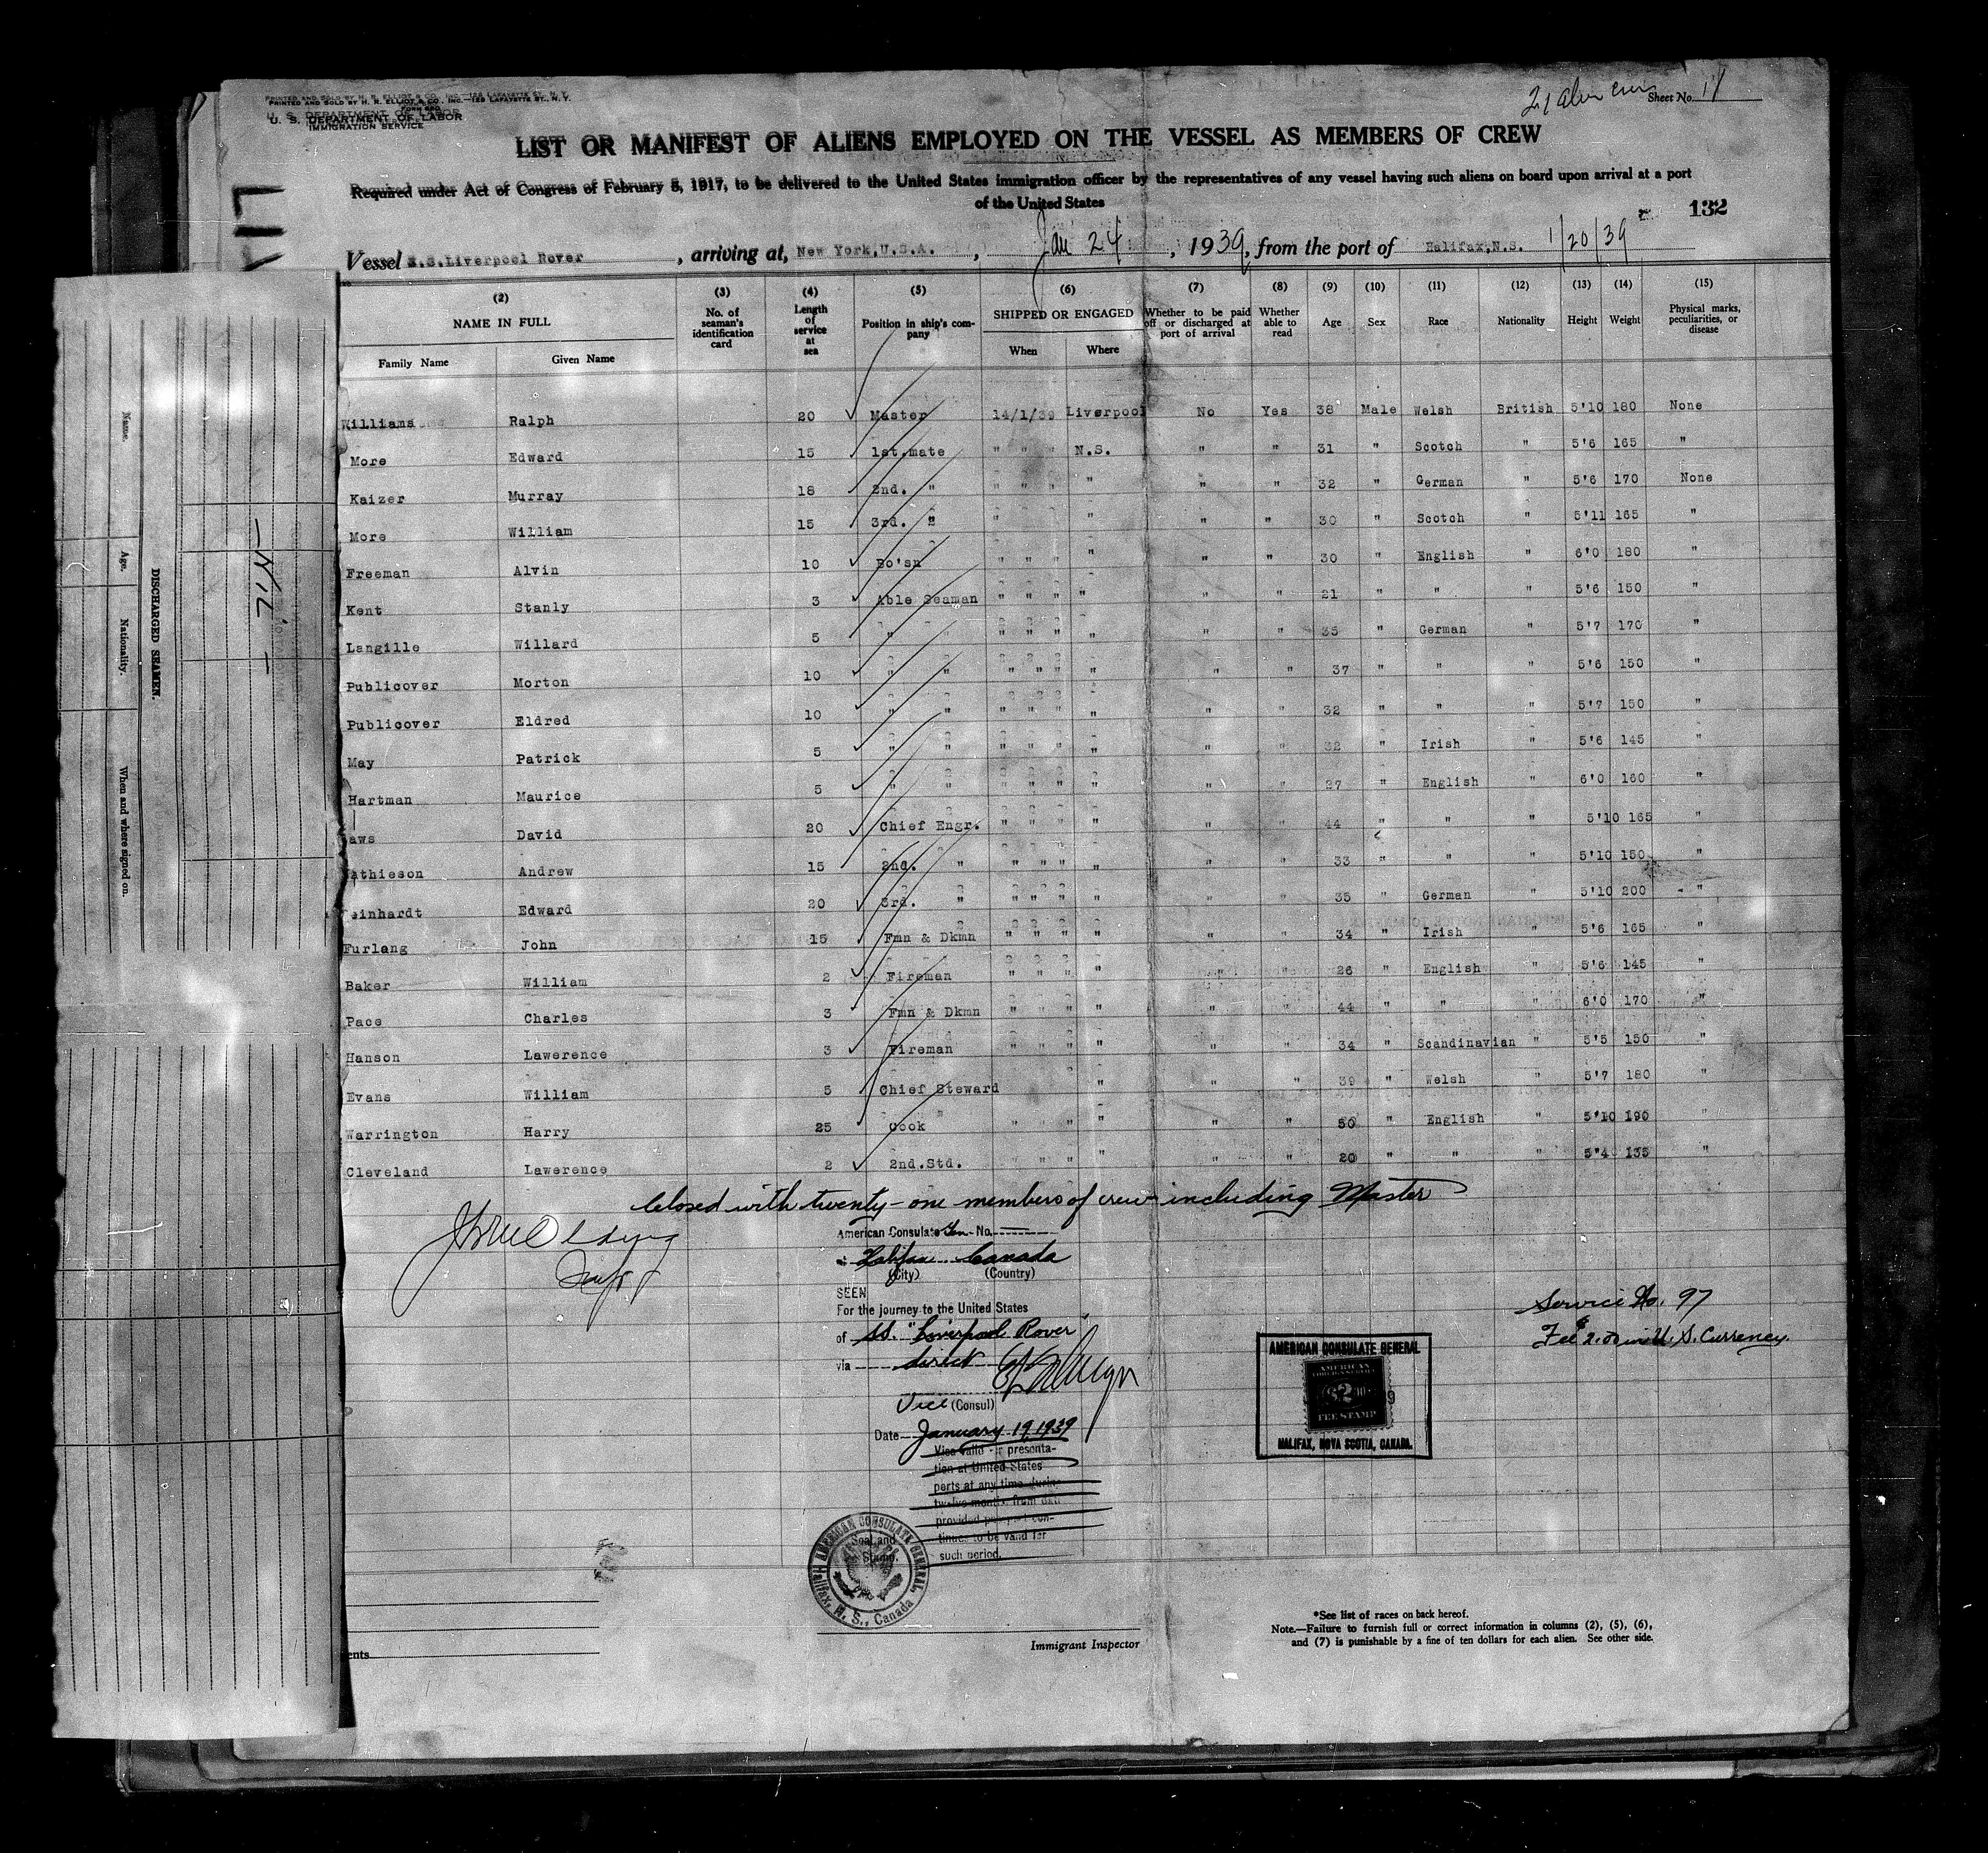 PRINTED AND SOLD BY H. R. ELLIOT & CO. INC.—129 LAFAYETTE ST., N. Y.
FORM 680
U. S. DEPARTMENT OF LABOR
IMMIGRATION SERVICE
21 alien crew Sheet No.
LIST OR MANIFEST OF ALIENS EMPLOYED ON THE VESSEL AS MEMBERS OF CREW
Required under Act of Congress of February 5, 1917, to be delivered to the United States immigration officer by the representatives of any vessel having such aliens on board upon arrival at a port
of the United States
132
Vessel S.S.Liverpool Rover, arriving at, New York,U.S.A., Jan 24, 1939, from the port of Halifax,N.S. 1/20/39
(2) NAME IN FULL Family Name Given Name (3) No. of seaman's identification card (4) Length of service at sea (5) Position in ship's company (6) SHIPPED OR ENGAGED When Where (7) Whether to be paid off or discharged at port of arrival (8) Whether able to read (9) Age (10) Sex (11) Race (12) Nationality (13) Height (14) Weight (15) Physical marks, peculiarities, or disease
Williams Ralph 20 Master 14/1/39 Liverpool No Yes 38 Male Welsh British 5'10 180 None
More Edward 15 1st.mate " " " N.S. " " 31 " Scotch " 5'6 165 "
Kaizer Murray 18 2nd. " " " " " " " 32 " German " 5'6 170 None
More William 15 3rd. " " " " " 30 " Scotch " 5'11 165 "
Freeman Alvin 10 Bo'sn " " " " " " 30 " English " 6'0 180 "
Kent Stanly 3 Able Seaman " " " " " " 21 " " " 5'6 150 "
Langille Willard 5 " " " " " " " " 35 " German " 5'7 170 "
Publicover Morton 10 " " " " " " " " 37 " " " 5'6 150 "
Publicover Eldred 10 " " " " " " " " 32 " " " 5'7 150 "
May Patrick 5 " " " " " " " " 32 " Irish " 5'6 145 "
Hartman Maurice 5 " " " " " " " " 27 " English " 6'0 160 "
aws David 20 Chief Engr. " " " " " " 44 " " " 5'10 165 "
athieson Andrew 15 2nd. " " " " " " " 33 " " " 5'10 150 "
einhardt Edward 20 3rd. " " " " " " " 35 " German " 5'10 200 "
Furlang John 15 Fmn & Dkmn " " " " " " 34 " Irish " 5'6 165 "
Baker William 2 Fireman " " " " " " 26 " English " 5'6 145 "
Pace Charles 3 Fmn & Dkmn " " " " " " 44 " " " 6'0 170 "
Hanson Lawerence 3 Fireman " " " " " " 34 " Scandinavian " 5'5 150 "
Evans William 5 Chief Steward " " " 39 " Welsh " 5'7 180 "
Warrington Harry 25 Cook " " " " " " 50 " English " 5'10 190 "
Cleveland Lawerence 2 2nd.Std. " " " " " " 20 " " " 5'4 135 "
Closed with twenty-one members of crew including Master
American Consulate Gen No.
Halifax Canada
(City) (Country)
SEEN
For the journey to the United States
of SS. "Liverpool Rover"
via direct
Vice (Consul)
Date January 19, 1939
Visa valid for presenta-
tion at United States
ports at any time during
twelve months from date
provided passport con-
tinues to be valid for
such period.
Seal and
Stamp.
AMERICAN CONSULATE GENERAL, Halifax, N. S., Canada
Service No. 97
Fee $2.00 in U. S. Currency.
AMERICAN CONSULATE GENERAL
AMERICAN
$2.00
FEE STAMP
HALIFAX, NOVA SCOTIA, CANADA.
ents
Immigrant Inspector
*See list of races on back hereof.
Note.—Failure to furnish full or correct information in columns (2), (5), (6),
and (7) is punishable by a fine of ten dollars for each alien. See other side.
DISCHARGED SEAMEN.
Name. Age. Nationality. When and where signed on.
— NIL —